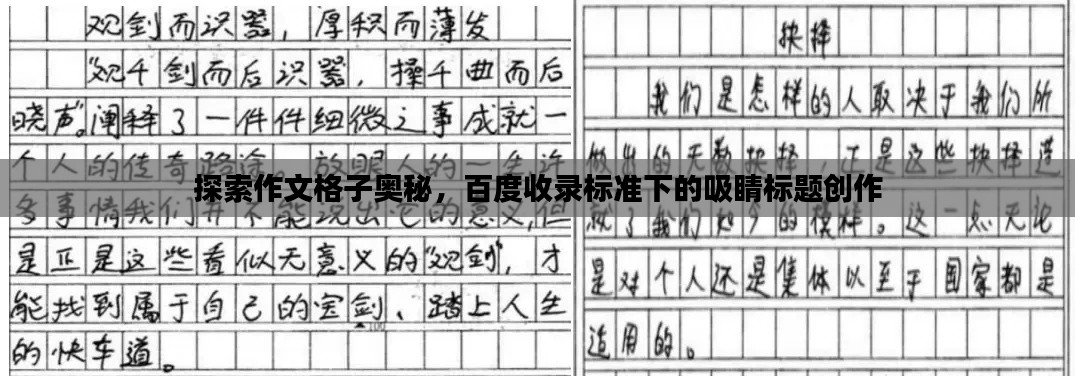 观剑而识器，厚积而薄发
“观千剑而后识器，操千曲而后
晓声”。阐释了一件件细微之事成就一
个人的传奇路途。放眼人的一生，许
多事情我们并不能说出它的意义，但
是正是这些看似无意义的“观剑”，才
能找到属于自己的宝剑、踏上人生
▲100
的快车道。
抉择
我们是怎样的人取决于我们所
做出的无数抉择，正是这些抉择造
就了我们如今的模样。这一点无论
是对个人还是集体以至于国家都是
适用的。
探索作文格子奥秘，百度收录标准下的吸睛标题创作